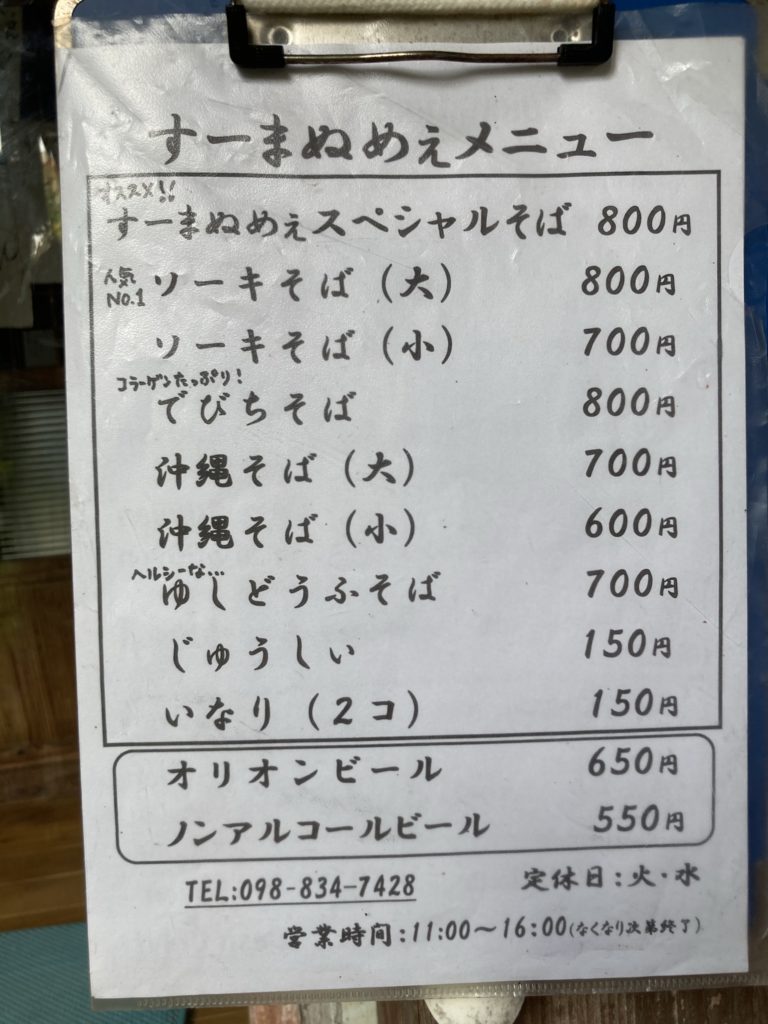 すーまぬめぇメニュー
オススメ!!
すーまぬめぇスペシャルそば 800円
人気
No.1
ソーキそば(大) 800円
ソーキそば(小) 700円
コラーゲンたっぷり!
てびちそば 800円
沖縄そば(大) 700円
沖縄そば(小) 600円
ヘルシーな...
ゆしどうふそば 700円
じゅうしぃ 150円
いなり(2コ) 150円
オリオンビール 650円
ノンアルコールビール 550円
TEL:098-834-7428 定休日:火・水
営業時間:11:00〜16:00(なくなり次第終了)